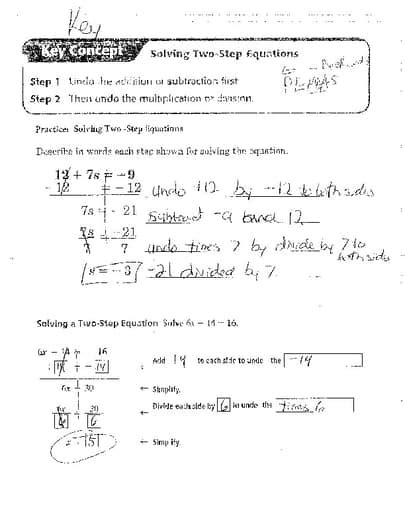 Key
Key Concept Solving Two-Step Equations
Step 1 Undo the addition or subtraction first
PEMDAS
Step 2 Then undo the multiplication or division.
Practice: Solving Two-Step Equations
Describe in words each step shown for solving the equation.
12 + 7s = -9
- 12 = - 12 undo +12 by -12 to both sides
7s = - 21 Subtract -9 and 12
7s = -21 undo times 7 by divide by 7 to
7 7 both sides
s = -3 -21 divided by 7
Solving a Two-Step Equation Solve 6x - 14 = 16.
6x - 14 = 16
14 14 Add 14 to each side to undo the -14
6x 30 ← Simplify.
6x 30 ← Divide each side by 6 to undo the times 6
6 6
5 ← Simplify.